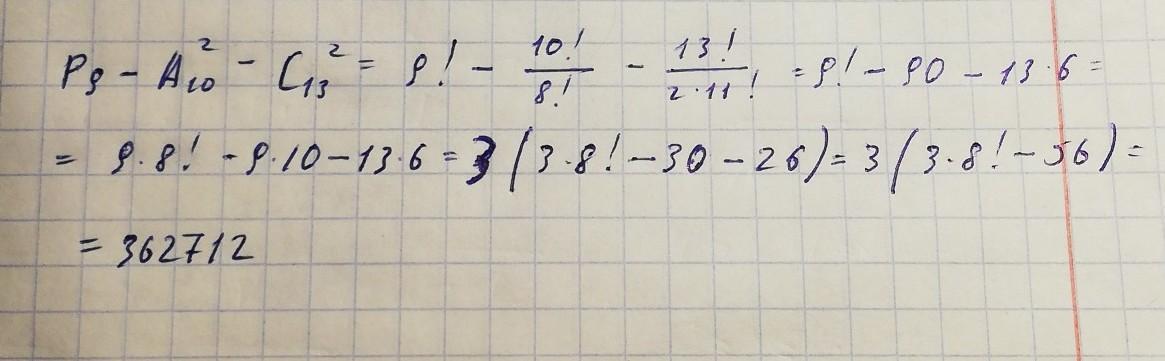 P₉ − A₁₀² − C₁₃² = 9! − 10!/8! − 13!/(2·11!) = 9! − 90 − 13·6 =
= 9·8! − 9·10 − 13·6 = 3(3·8! − 30 − 26) = 3(3·8! − 56) =
= 362712